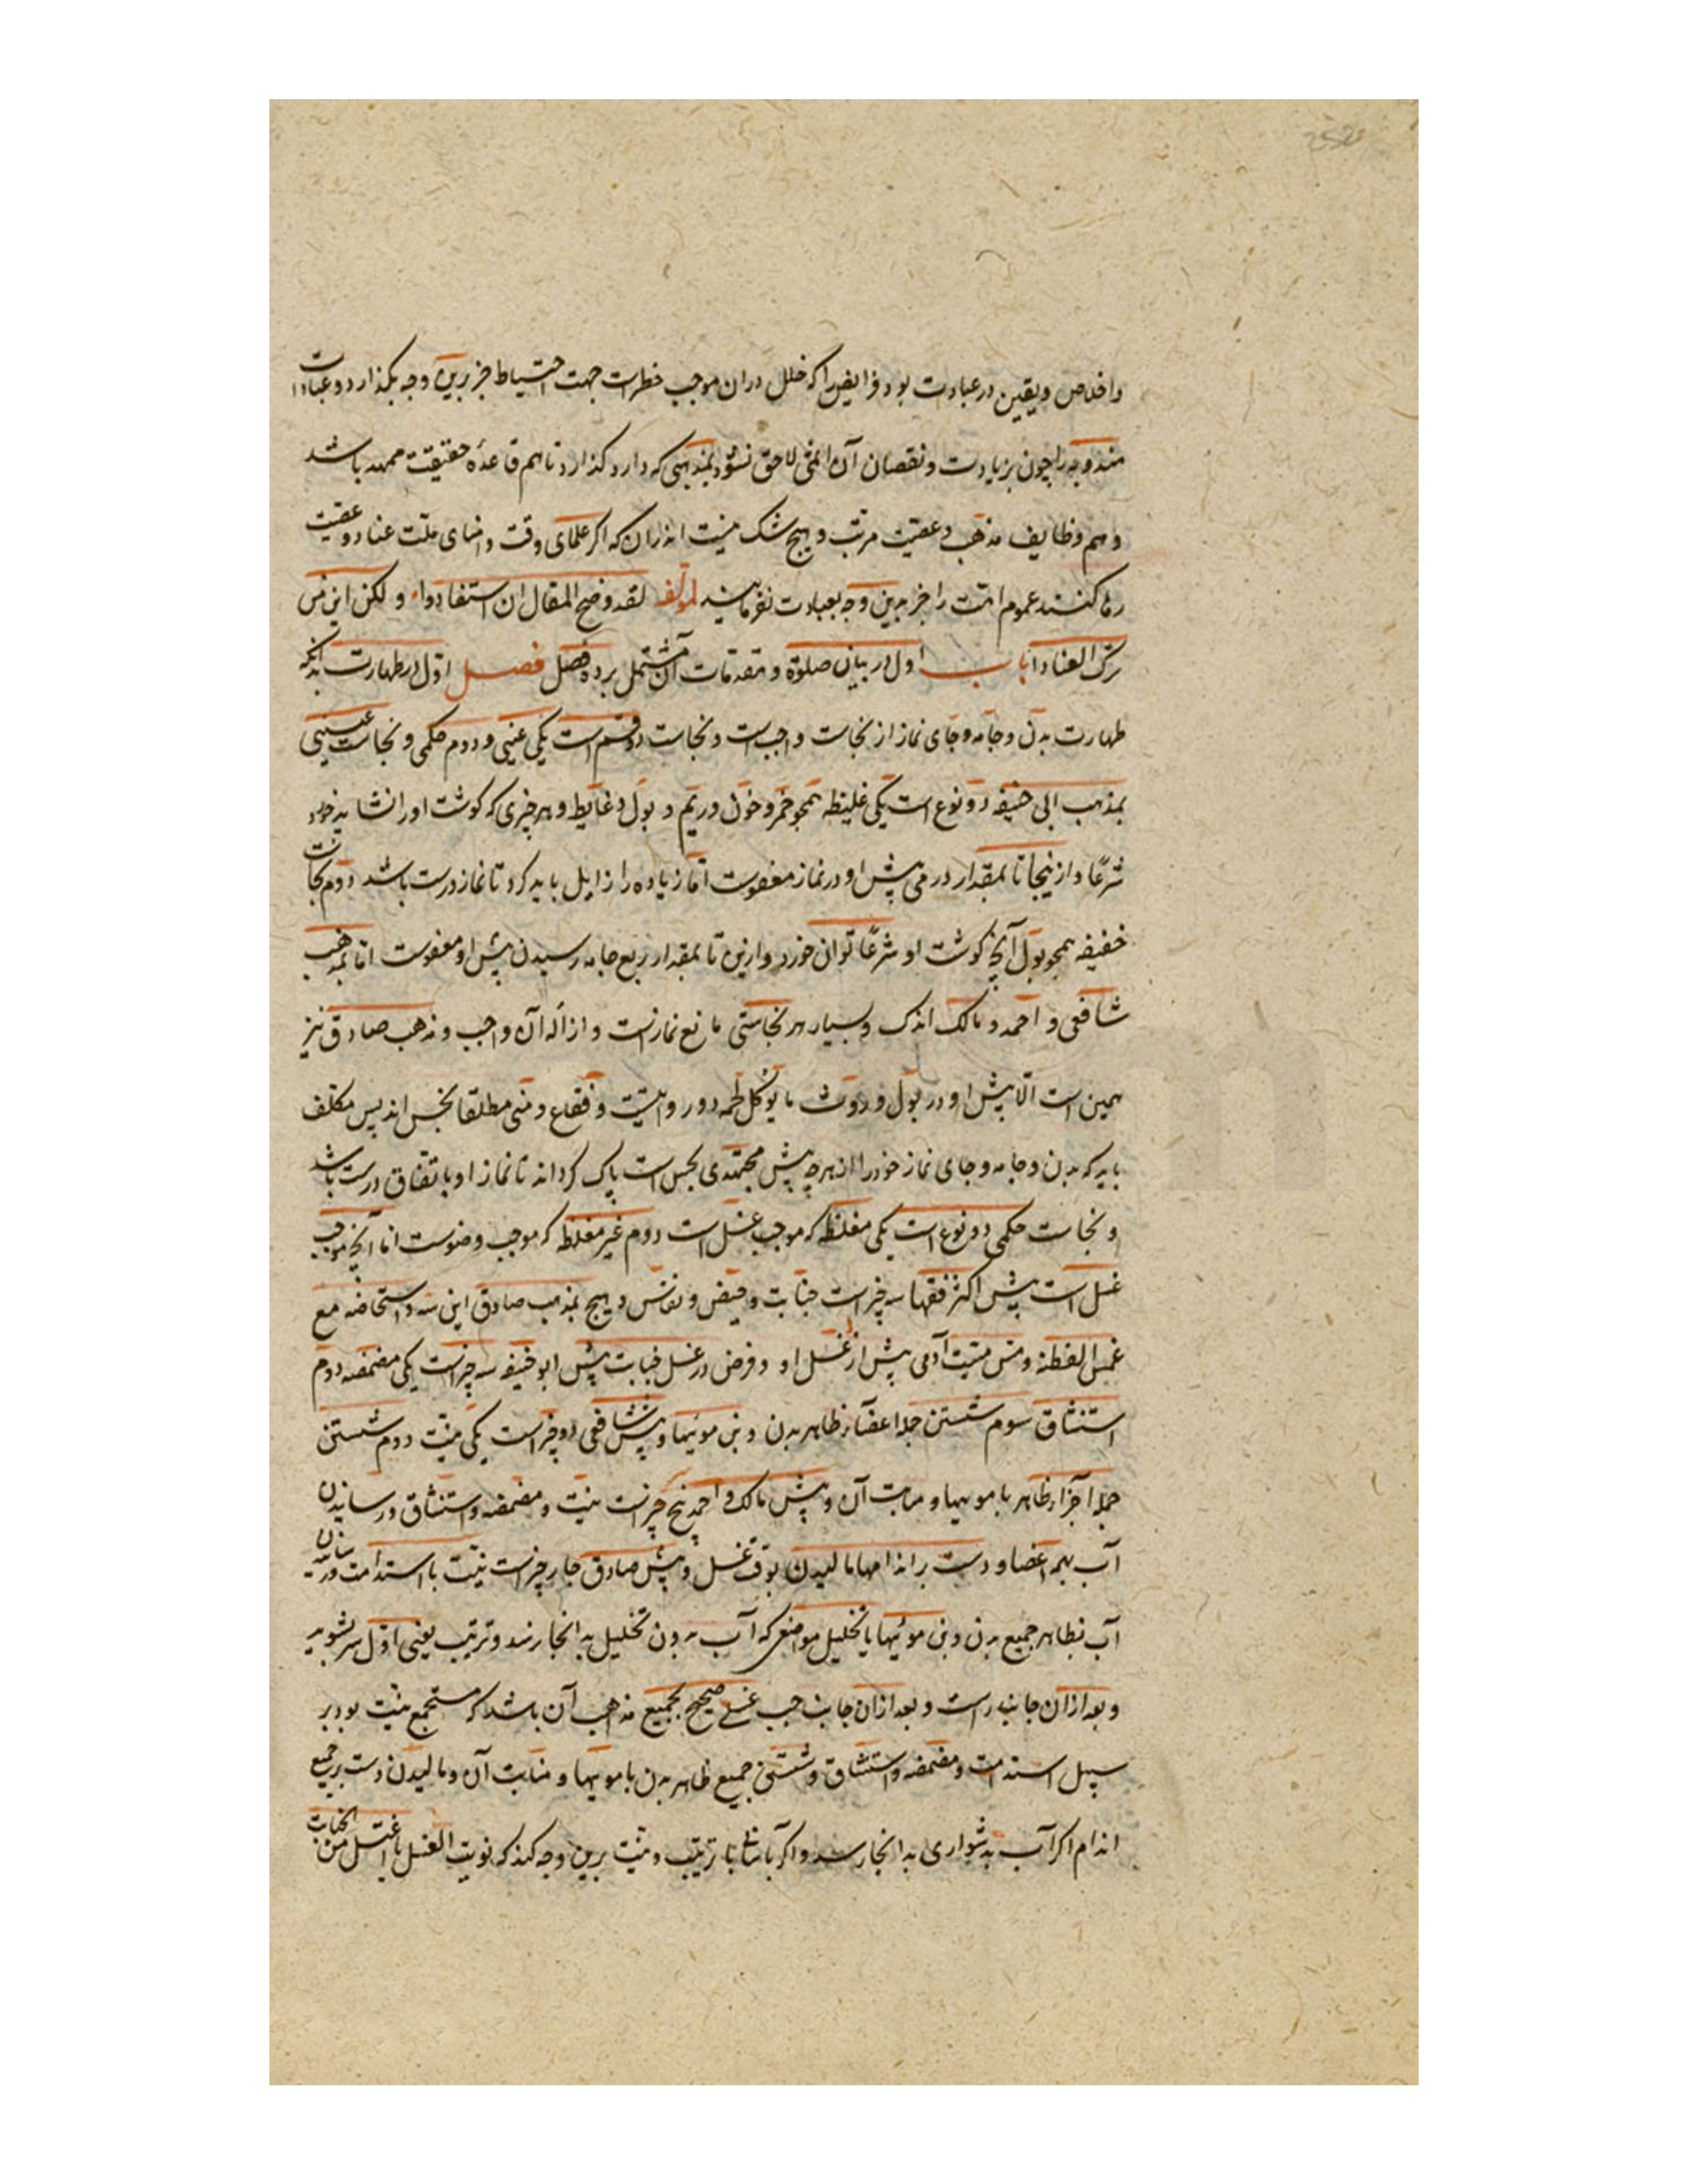 واخلاص و یقین در عبادت بود فرایض را که خلل دران موجب خطراست جهت احتیاط جز برین وجه نگذارد و عبادات
مندوبه را چون بزیادت و نقصان آن اثمی لاحق نشود بمذهبی که دارد گذارد تا هم قاعدهٔ حقیقت ممهد باشد
و هم وظایف مذهب و عقیدت مرتب و هیچ شک نیست اندران که اگر علمای وقت و امنای ملت عناد و عقیدت
رها کنند عموم امت را جز بدین وجه بعبادت نفرمایند لمؤلفه لقد وضح المقال ان استفادوا و لکن این من
ترک العنادا باب اول در بیان صلوة و مقدمات آن مشتمل بر ده فصل فصل اول در طهارت بدانکه
طهارت بدن و جامه و جای نماز از نجاست واجبست و نجاست دو قسم است یکی عینی و دوم حکمی و نجاست عینی
بمذهب ابی حنیفه دو نوع است یکی غلیظه همچو خمر و خون و ریم و بول و غایط و هر چیزی که گوشت او را نشاید خورد
شرعًا و ازینجا تا بمقدار درمی پیش او در نماز معفوست اما زیاده را زایل باید کرد تا نماز درست باشد دوم نجاست
خفیفه همچو بول آنچ گوشت او شرعًا توان خورد و ازین تا بمقدار ربع جامه رسیدن پیش او معفوست اما بمذهب
شافعی و احمد و مالک اندک و بسیار هر نجاستی مانع نمازست و ازاله آن واجب و مذهب صادق نیز
همین است الا پیش او در بول و روث ما یؤکل لحمه دو روایتست و فقاع و منی مطلقا نجس اند پس مکلف
باید که بدن و جامه و جای نماز خود را از هر چه پیش مجتهدی نجس است پاک گرداند تا نماز او باتفاق درست باشد
و نجاست حکمی دو نوع است یکی مغلظه که موجب غسل است دوم غیر مغلظه که موجب وضوست اما آنچ موجب
غسل است پیش اکثر فقها سه چیز است جنابت و حیض و نفاس و هیچ بمذهب صادق این سه و استحاضه مع
غمس القطنة و مس میت آدمی پیش از غسل او و فرض در غسل جنابت پیش ابو حنیفه سه چیزست یکی مضمضه دوم
استنشاق سوم شستن جمله اعضاء ظاهر بدن و بن مویها و پیش شافعی دو چیز است یکی نیت دوم شستن
جمله اجزاء ظاهر با مویها و منابت آن و پیش مالک و احمد پنج چیزست نیت و مضمضه و استنشاق و رسانیدن
آب بهمه اعضا و دست بر اندامها مالیدن بوقت غسل و پیش صادق چار چیزست نیت با استدامت و رسانیدن
آب بظاهر جمیع بدن و بن مویها با تخلیل مواضعی که آب بدون تخلیل بدانجا نرسد و ترتیب یعنی اول سر بشوید
و بعد ازان جانب راست و بعد ازان جانب چپ غسلی صحیح بجمیع مذهب آن باشد که مستجمع نیت بود بر
سبیل استدامت و مضمضه و استنشاق و شستن جمیع ظاهر بدن با مویها و منابت آن و مالیدن دست بر جمیع
اندام اگر آب بدشواری بدانجا رسد و اگر باشد با ترتیب و نیت برین وجه کند که نویت الغسل با غتسل من الجنابت